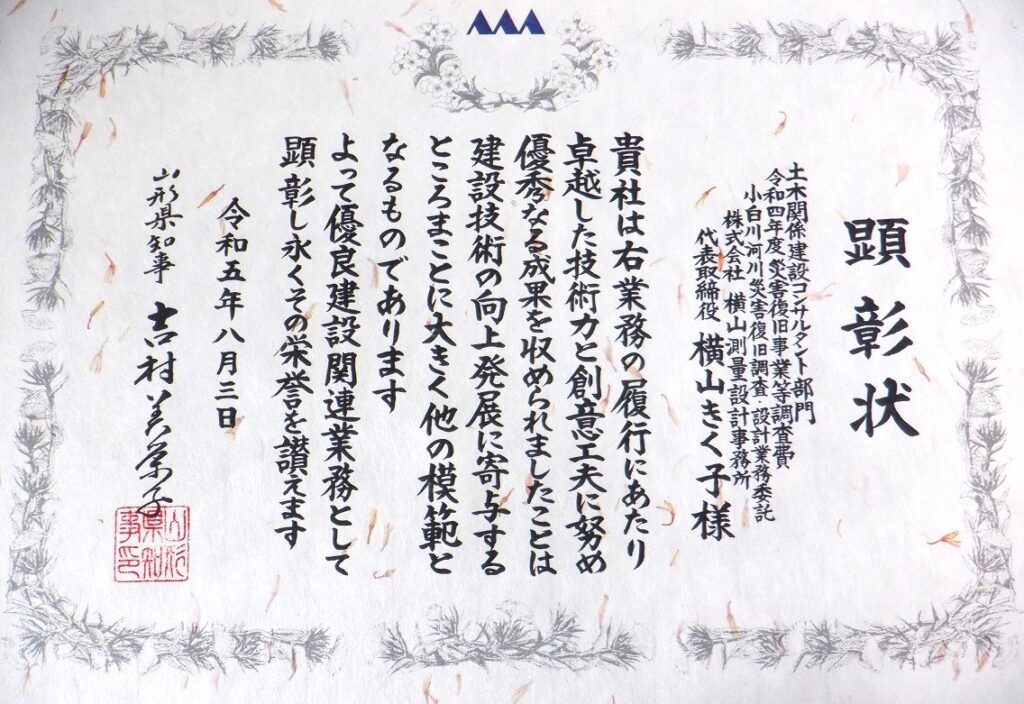 顕彰状
土木関係建設コンサルタント部門
令和四年度災害復旧事業等調査費
小白川河川災害復旧調査・設計業務委託
株式会社 横山測量設計事務所
代表取締役 横山きく子様
貴社は右業務の履行にあたり
卓越した技術力と創意工夫に努め
優秀なる成果を収められましたことは
建設技術の向上発展に寄与する
ところまことに大きく他の模範と
なるものであります
よって優良建設関連業務として
顕彰し永くその栄誉を讃えます
令和五年八月三日
山形県知事 吉村美栄子
山形県知事印